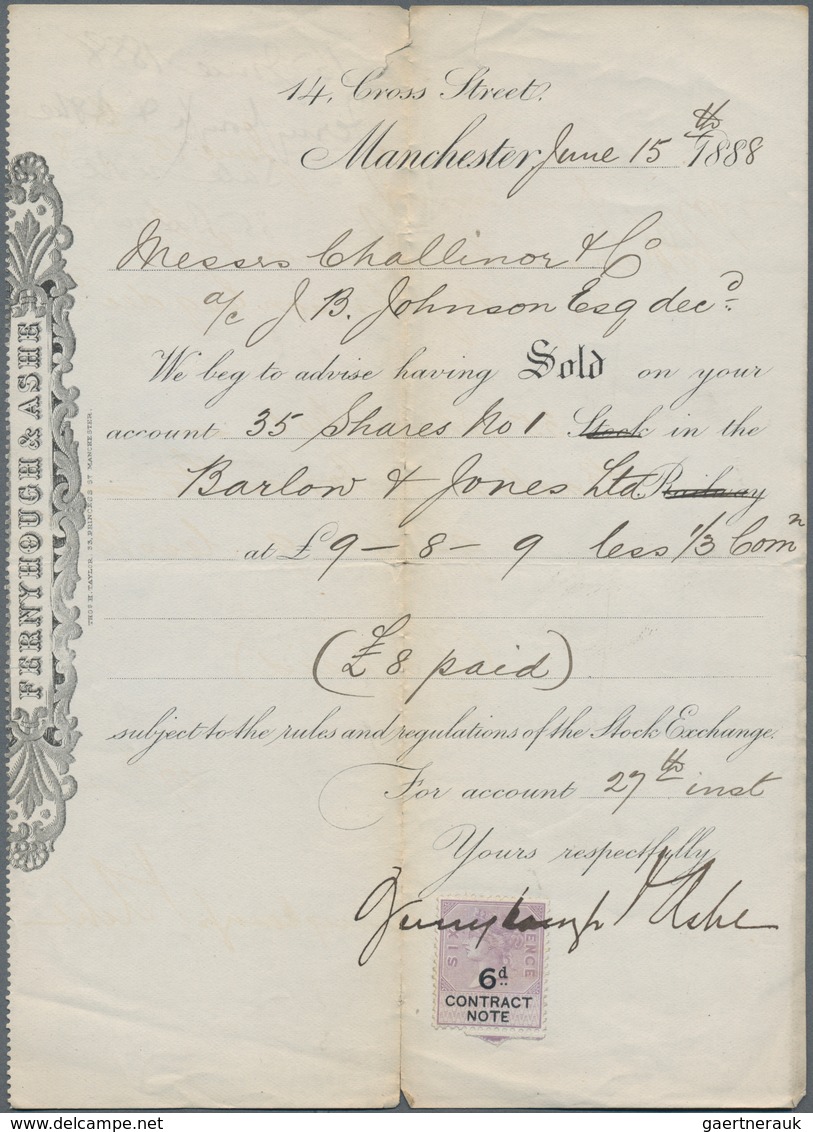 14, Cross Street,
Manchester, June 15th 1888
Messrs Challinor & Co
a/c J. B. Johnson Esq decd.
We beg to advise having Sold on your
account 35 Shares No 1 Stock in the
Barlow & Jones Ltd. Railway
at £ 9 - 8 - 9 less 1/3 Comn
(£8 paid)
subject to the rules and regulations of the Stock Exchange.
For account 27th inst
Yours respectfully
Fernyhough & Ashe
SIX PENCE
6d
CONTRACT
NOTE
FERNYHOUGH & ASHE
THOS H. TAYLOR, 53, PRINCESS ST MANCHESTER.
www.delcampe.net
gaertnerauk